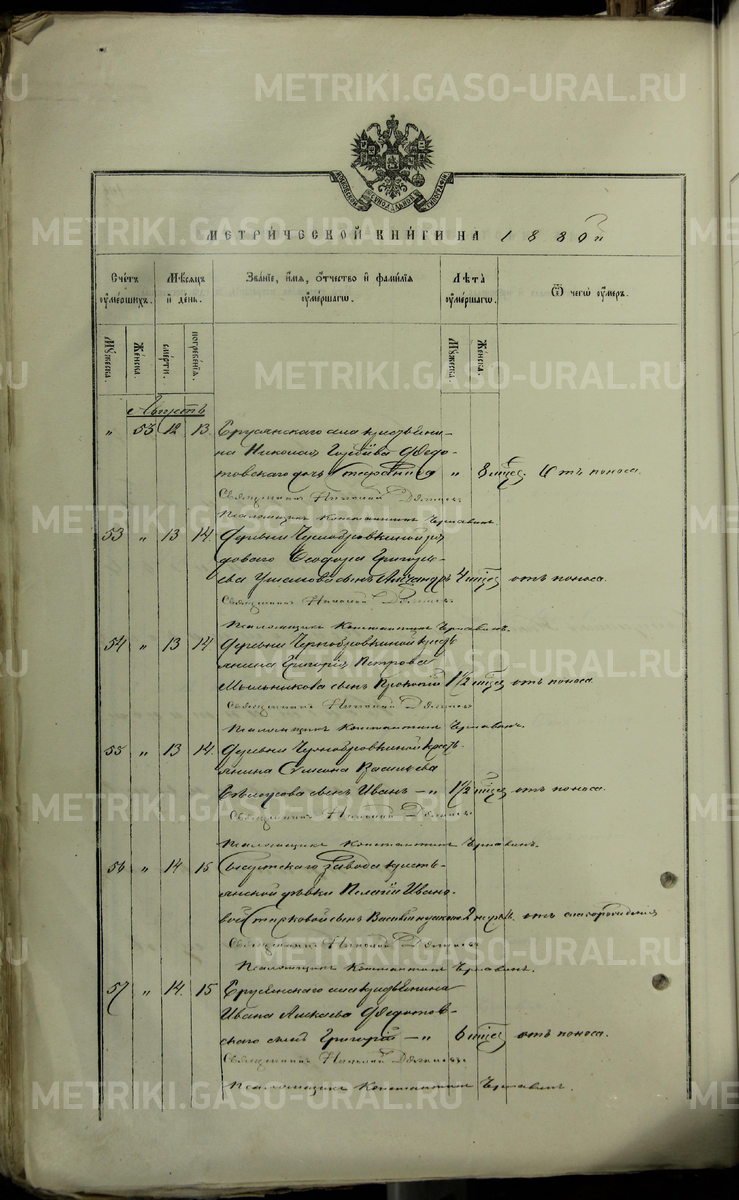 METRIKI.GASO-URAL.RU
МЕТРИЧЕСКОЙ КНИГИ НА 1880й
Счетъ умершихъ.
Мѣсяцъ и день.
Званіе, имя, отчество и фамилія умершаго.
Лѣта умершаго.
Ѿ чего умеръ.
Мужеска.
Женска.
смерти.
погребенія.
Мужеска.
Женска.
Августъ
" 53 12 13 села крестьяни-
на Николая Федо-
товскаго дочь " 8 мѣс. Отъ поноса.
Священникъ Николай
Псаломщикъ Константинъ Чернавинъ.
53 " 13 14 Деревни Чернобровкиной ря
дового Ѳеодора Григорь-
ева Ушакова сынъ Александръ 4 мѣс. отъ поноса.
Священникъ Николай
Псаломщикъ Константинъ Чернавинъ.
54 " 13 14 Деревни Чернобровкиной кресть
янина Григорія Петрова
Мыльникова сынъ Прокопій 1 1/2 мѣс. отъ поноса
Священникъ Николай
Псаломщикъ Константинъ Чернавинъ.
55 " 13 14. Деревни Чернобровкиной кресть
янина Симеона Васильева
Бѣлоусова сынъ Иванъ — " 1 1/2 мѣс. отъ поноса.
Священникъ Николай
Псаломщикъ Константинъ Чернавинъ.
56 " 14 15 Сысертскаго завода кресть-
янской дѣвки Пелагіи Ивано-
вой сынъ 2 нед. отъ
Священникъ Николай
Псаломщикъ Константинъ Чернавинъ.
57 " 14. 15 села крестьянина
Ивана Алексѣева Федотов-
скаго сынъ Григорій — " 6 мѣс. отъ поноса.
Священникъ Николай
Псаломщикъ Константинъ Чернавинъ.